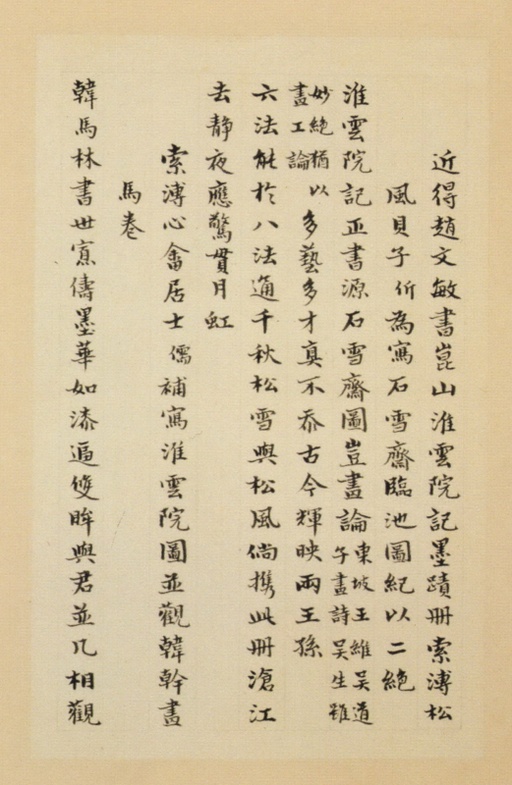 近得趙文敏書崑山淮雲院記墨蹟冊索溥松
風貝子伒為寫石雪齋臨池圖紀以二絕
淮雲院記正書源石雪齋圖豈畫論東坡王維吳道子畫詩吳生雖
妙絕猶以畫工論多藝多才真不忝古今輝映兩王孫
六法能於八法通千秋松雪與松風倘攜此冊滄江
去靜夜應驚貫月虹
索溥心畬居士儒補寫淮雲院圖並觀韓幹畫
馬卷
韓馬林書世寡儔墨華如漆逼雙眸與君並几相觀